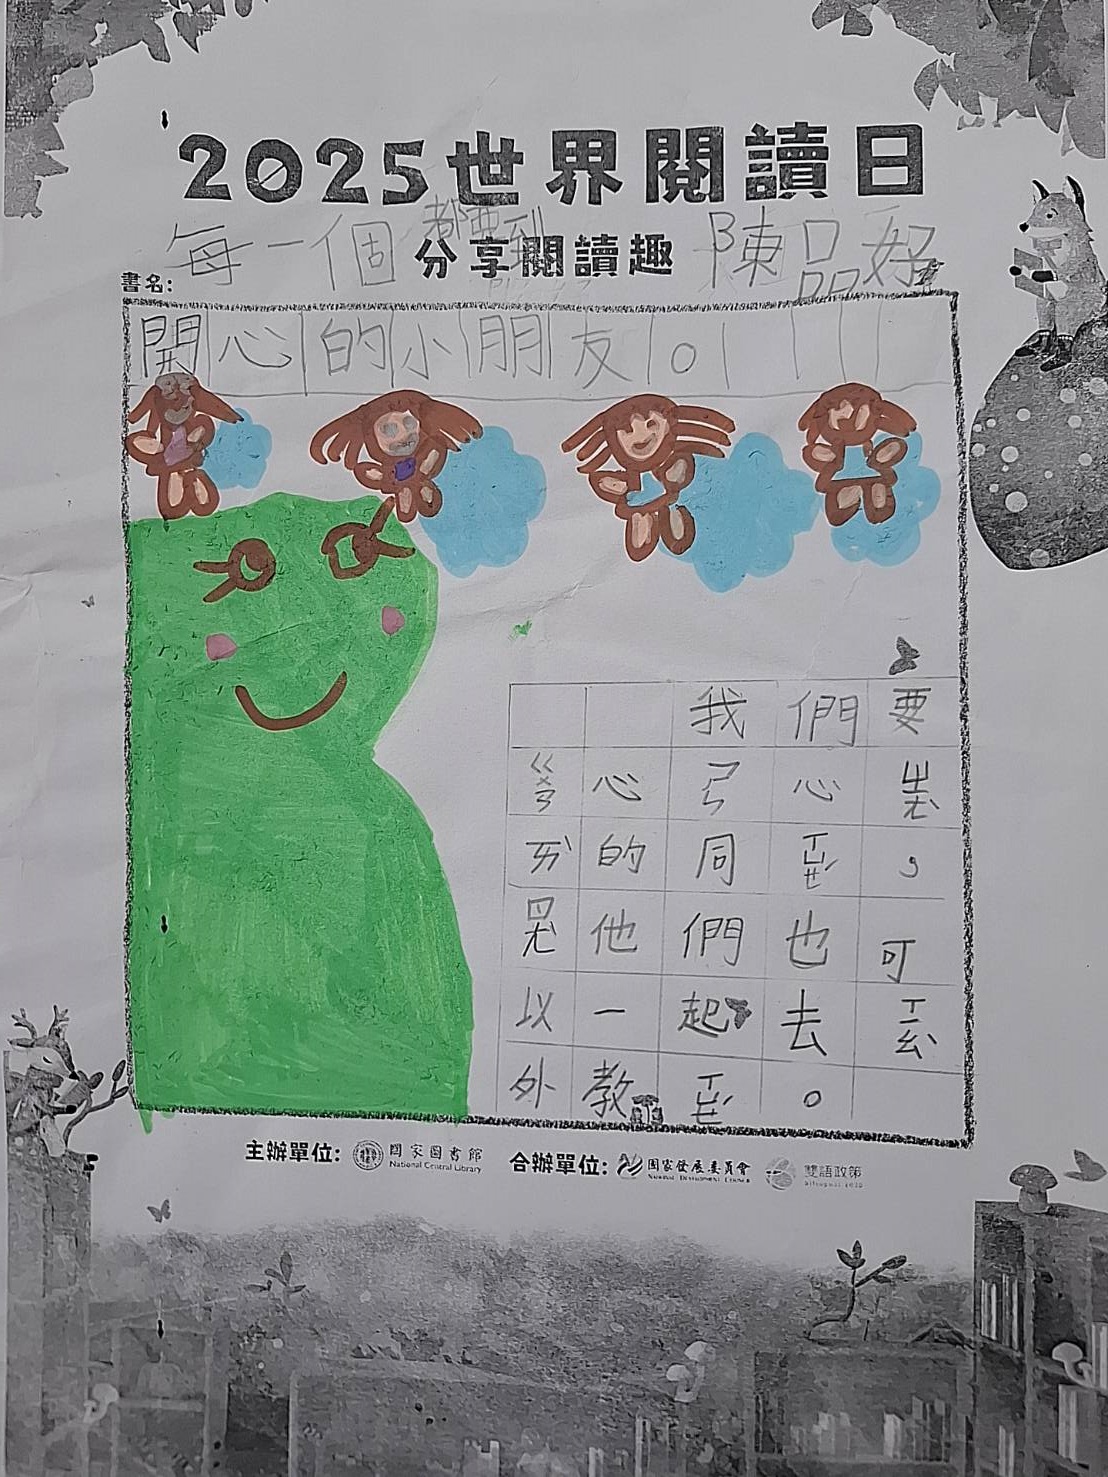 2025世界閱讀日
每一個都要到 陳品妤
分享閱讀趣
書名:
開心的小朋友。
我們要
ㄍㄨㄢ心ㄕㄣ心ㄓㄤ
ㄞˋ的同ㄒㄩㄝˊ，
ㄖㄤ他們也可
以一起去ㄒㄧㄠˋ
外教ㄒㄩㄝˊ。
主辦單位: 國家圖書館 National Central Library 合辦單位: 國家發展委員會 National Development Council 雙語政策 bilingual 2030